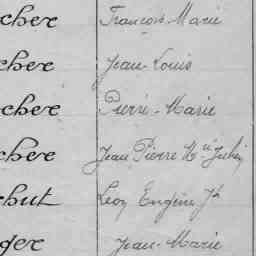 cher François Marie
cher Jean-Louis
cher Pierre-Marie
cher Jean Pierre Mie Julien
chut Léon Eugène Jh
ger Jean-Marie